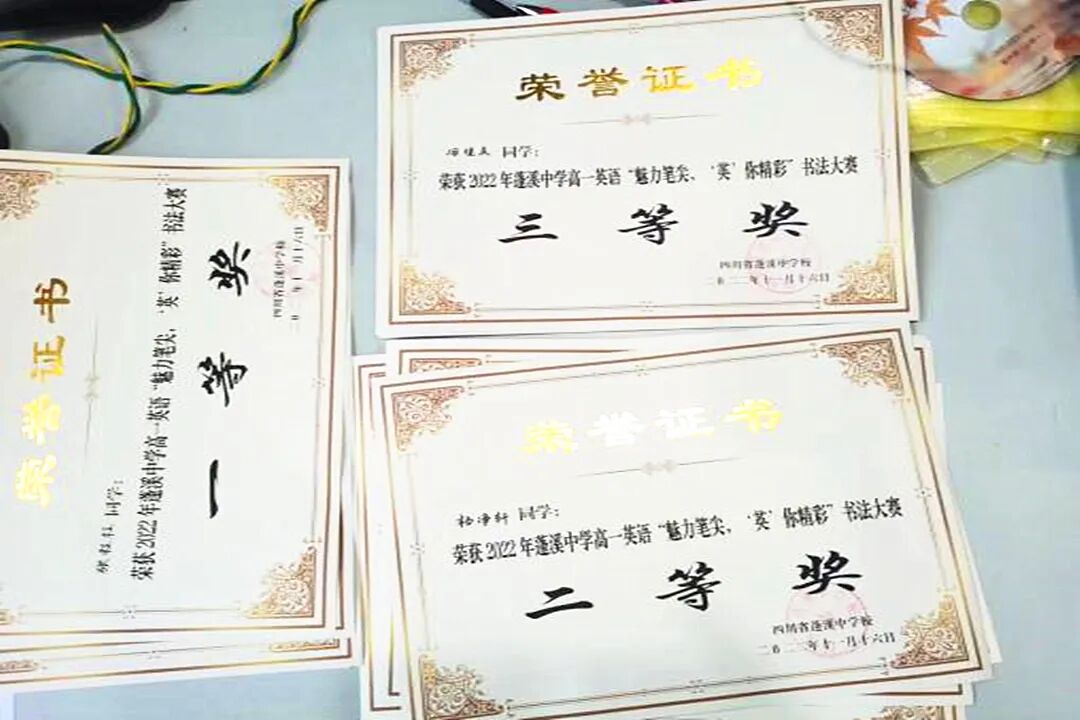 荣誉证书
同学:
荣获2022年蓬溪中学高一英语“魅力笔尖,‘英’你精彩”书法大赛
一等奖
四川省蓬溪中学校
二〇二二年十一月十六日
荣誉证书
同学:
荣获2022年蓬溪中学高一英语“魅力笔尖、‘英’你精彩”书法大赛
三等奖
四川省蓬溪中学校
二〇二二年十一月十六日
荣誉证书
同学:
荣获2022年蓬溪中学高一英语“魅力笔尖,‘英’你精彩”书法大赛
二等奖
四川省蓬溪中学校
二〇二二年十一月十六日